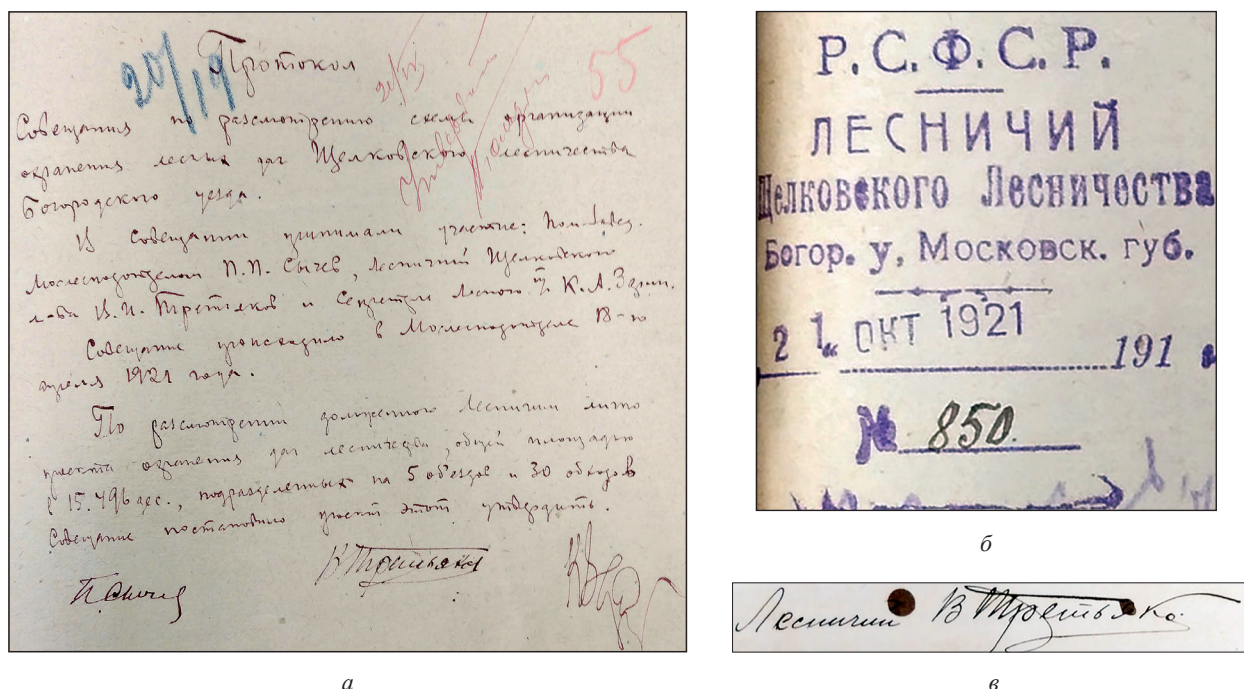 20/19
Протокол
55
Совещания по рассмотрению схемы организации
охранения лесных дач Щелковского лесничества
Богородского уезда.
В Совещании принимали участие: Пом. Завед.
Мослесподотделом П.П. Сычев, Лесничий Щелковского
л-ва В.И. Третьяков и Секретарь Лесного К.А.
Совещание происходило в Мослесподотделе 18-го
апреля 1921 года.
По рассмотрении доложенного Лесничим лично
проекта охранения дач лесничества, общей площадью
в 15.496 дес., подразделенных на 5 объездов и 30 обходов
Совещание постановило проект этот утвердить.
П Сычев
В Третьяков
а
Р.С.Ф.С.Р.
ЛЕСНИЧИЙ
Щелковского Лесничества
Богор. у, Московск. губ.
2 1 „ ОКТ 1921 191
№ 850.
б
Лесничий В Третьяков
в